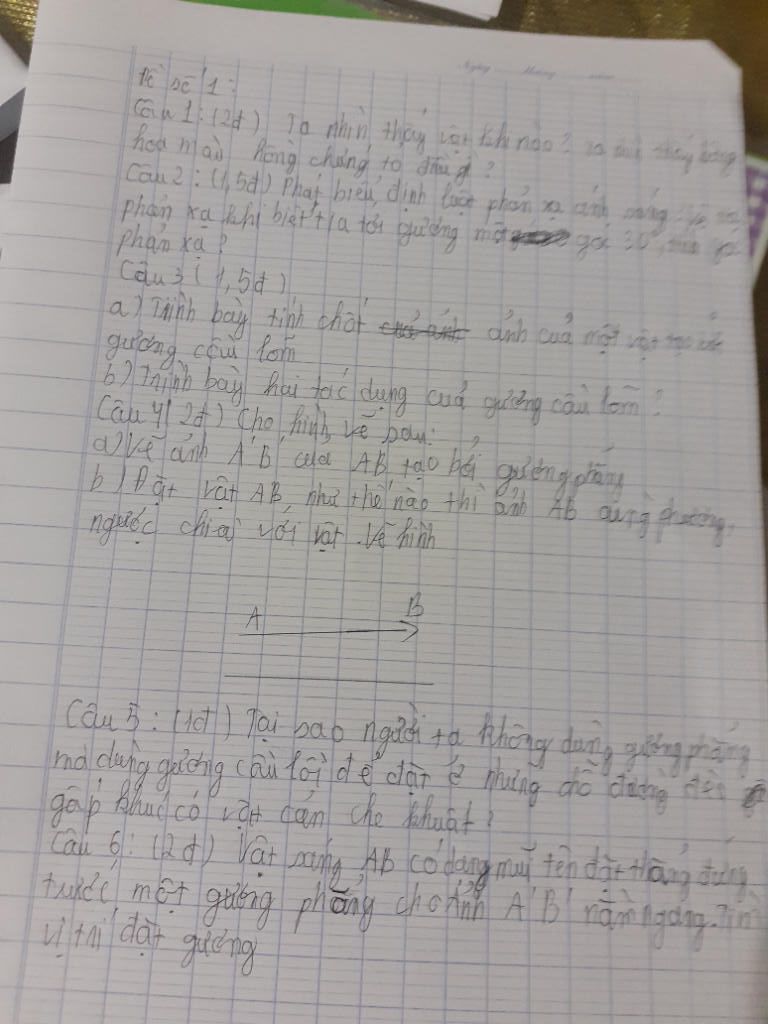 Đề số 1:
Câu 1: (2đ) Ta nhìn thấy vật khi nào? ta thấy bông
hoa màu hồng chứng tỏ điều gì?
Câu 2: (1,5đ) Phát biểu định luật phản xạ ánh sáng. Vẽ tia
phản xạ khi biết tia tới gương một góc 30°, góc
phản xạ?
Câu 3 (1,5đ)
a) Trình bày tính chất ảnh của một vật tạo
gương cầu lõm
b) Trình bày hai tác dụng của gương cầu lõm?
Câu 4 (2đ) Cho hình vẽ sau:
a) Vẽ ảnh A'B' của AB tạo bởi gương phẳng
b) Đặt vật AB như thế nào thì ảnh AB cùng phương,
ngược chiề với vật. Vẽ hình
A B
Câu 5: (1đ) Tại sao người ta không dùng gương phẳng
mà dùng gương cầu lồi để đặt ở những chỗ đường đèo
gấp khúc có vật cản che khuất?
Câu 6: (2đ) Vật sáng AB có dạng mũi tên đặt thẳng đứng
trước một gương phẳng cho ảnh A'B' nằm ngang. Tìm
vị trí đặt gương